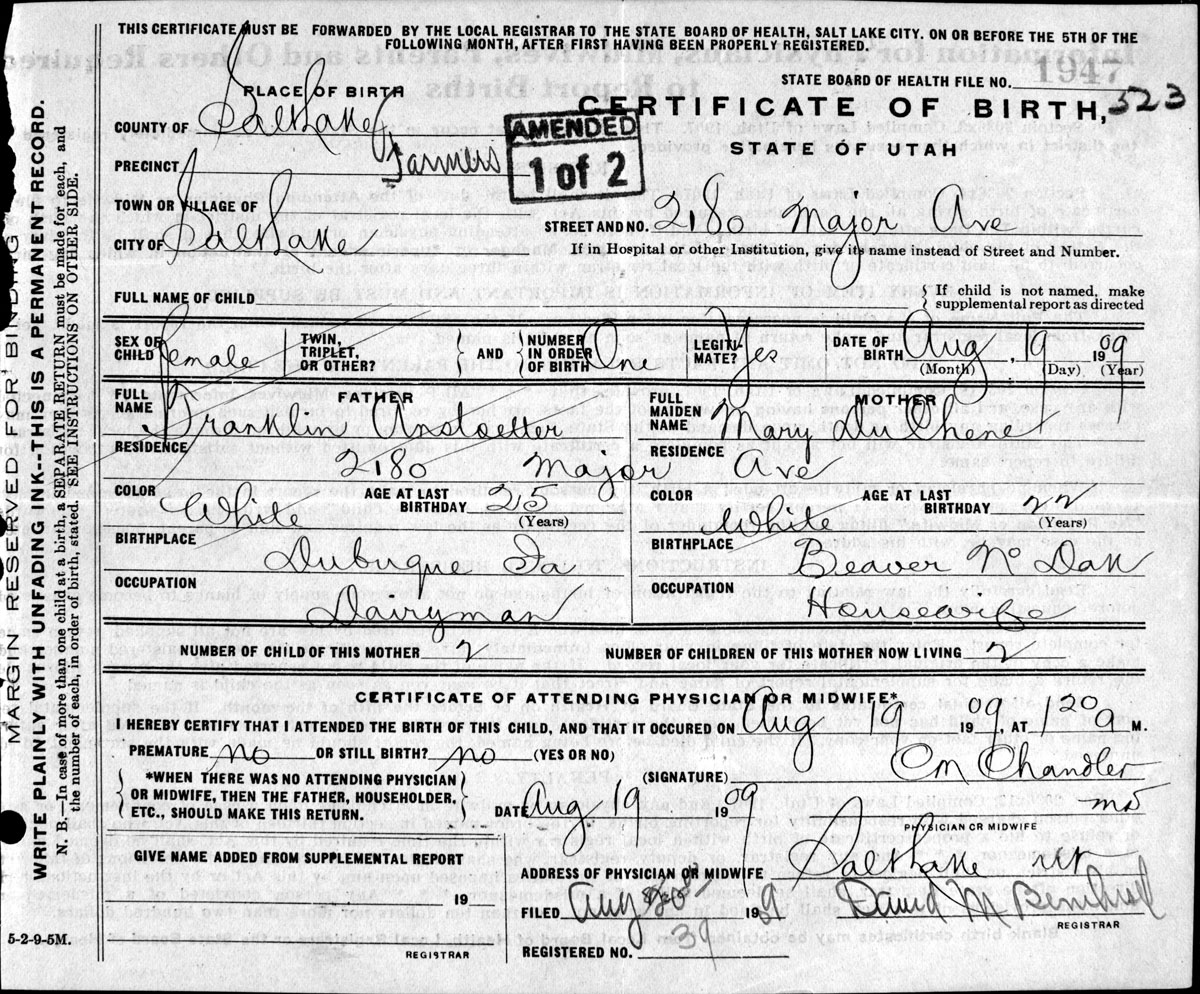 THIS CERTIFICATE MUST BE FORWARDED BY THE LOCAL REGISTRAR TO THE STATE BOARD OF HEALTH, SALT LAKE CITY. ON OR BEFORE THE 5TH OF THE
FOLLOWING MONTH, AFTER FIRST HAVING BEEN PROPERLY REGISTERED.
STATE BOARD OF HEALTH FILE NO. 1947
PLACE OF BIRTH
CERTIFICATE OF BIRTH, 523
STATE OF UTAH
AMENDED
1 of 2
COUNTY OF Salt Lake
PRECINCT Farmers
TOWN OR VILLAGE OF
CITY OF Salt Lake
STREET AND NO. 2180 Major Ave
If in Hospital or other Institution, give its name instead of Street and Number.
FULL NAME OF CHILD
If child is not named, make
supplemental report as directed
SEX OF CHILD Female
TWIN, TRIPLET, OR OTHER?
AND
NUMBER IN ORDER OF BIRTH One
LEGITIMATE? Yes
DATE OF BIRTH Aug, 19 1909
(Month) (Day) (Year)
FATHER
FULL NAME Franklin
MOTHER
FULL MAIDEN NAME Mary
RESIDENCE 2180 Major
RESIDENCE Ave
COLOR White
AGE AT LAST BIRTHDAY 25
(Years)
COLOR White
AGE AT LAST BIRTHDAY 22
(Years)
BIRTHPLACE Dubuque Ia
BIRTHPLACE Beaver No Dak
OCCUPATION Dairyman
OCCUPATION Housewife
NUMBER OF CHILD OF THIS MOTHER 2
NUMBER OF CHILDREN OF THIS MOTHER NOW LIVING 2
CERTIFICATE OF ATTENDING PHYSICIAN OR MIDWIFE*
I HEREBY CERTIFY THAT I ATTENDED THE BIRTH OF THIS CHILD, AND THAT IT OCCURED ON Aug 19 1909, AT 120 a M.
PREMATURE no OR STILL BIRTH? no (YES OR NO)
*WHEN THERE WAS NO ATTENDING PHYSICIAN
OR MIDWIFE, THEN THE FATHER, HOUSEHOLDER,
ETC., SHOULD MAKE THIS RETURN.
(SIGNATURE) CM Chandler
MD
DATE Aug 19 1909
PHYSICIAN OR MIDWIFE
GIVE NAME ADDED FROM SUPPLEMENTAL REPORT
19
REGISTRAR
ADDRESS OF PHYSICIAN OR MIDWIFE Salt Lake
FILED Aug 190
REGISTRAR
REGISTERED NO.
5-2-9-5M.
MARGIN RESERVED FOR BINDING
WRITE PLAINLY WITH UNFADING INK--THIS IS A PERMANENT RECORD.
N. B.—In case of more than one child at a birth, a SEPARATE RETURN must be made for each, and
the number of each, in order of birth, stated. SEE INSTRUCTIONS ON OTHER SIDE.